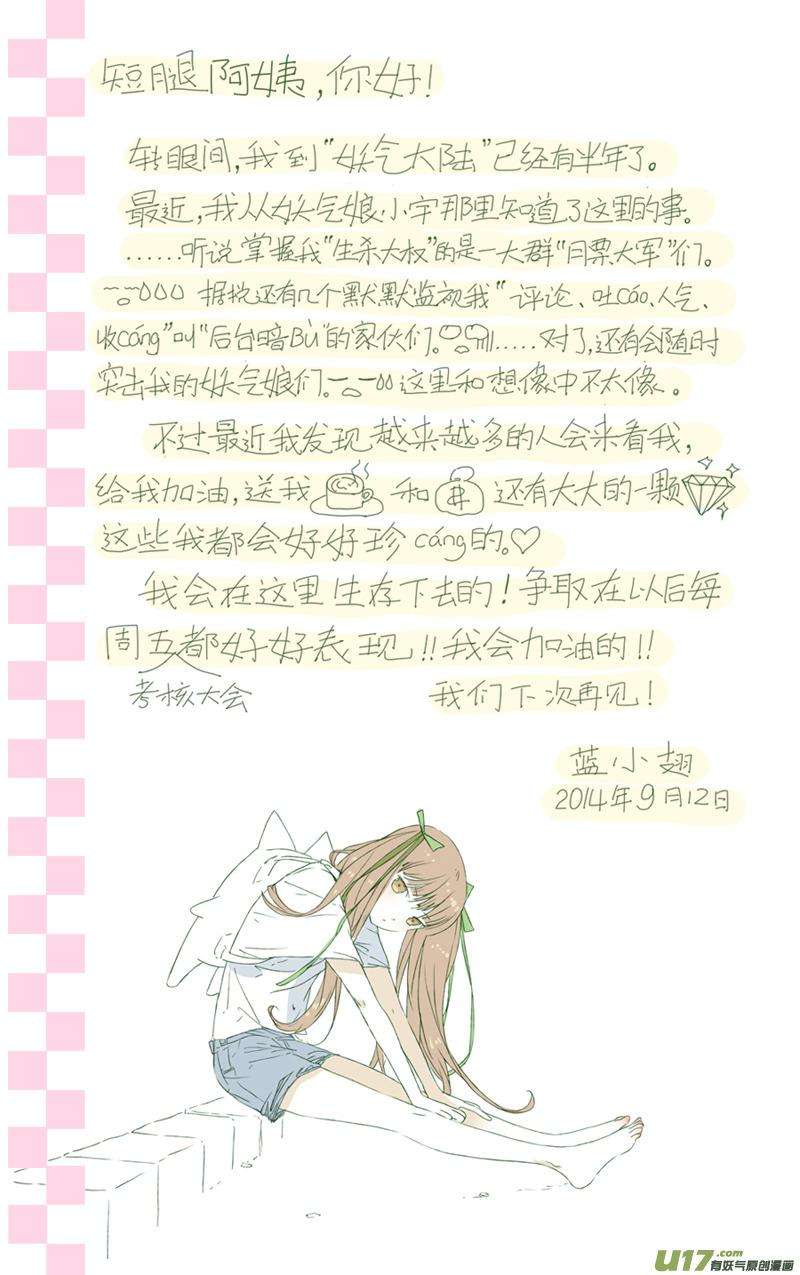 短腿阿姨，你好！
转眼间，我到“妖气大陆”已经有半年了。
最近，我从妖气娘小宇那里知道了这里的事。
......听说掌握我“生杀大权”的是一大群“月票大军”们。
据说还有几个默默监视我“评论、吐cáo、人气、
收cáng”叫“后台暗Bù”的家伙们。.....对了，还有会随时
突击我的妖气娘们。这里和想像中不太像。
不过最近我发现越来越多的人会来看我，
给我加油，送我和还有大大的一颗
这些我都会好好珍cáng的。♡
我会在这里生存下去的！争取在以后每
周五都好好表现!!我会加油的!!
考核大会 我们下次再见！
蓝小翅
2014年9月12日
U17.com
有妖气原创漫画